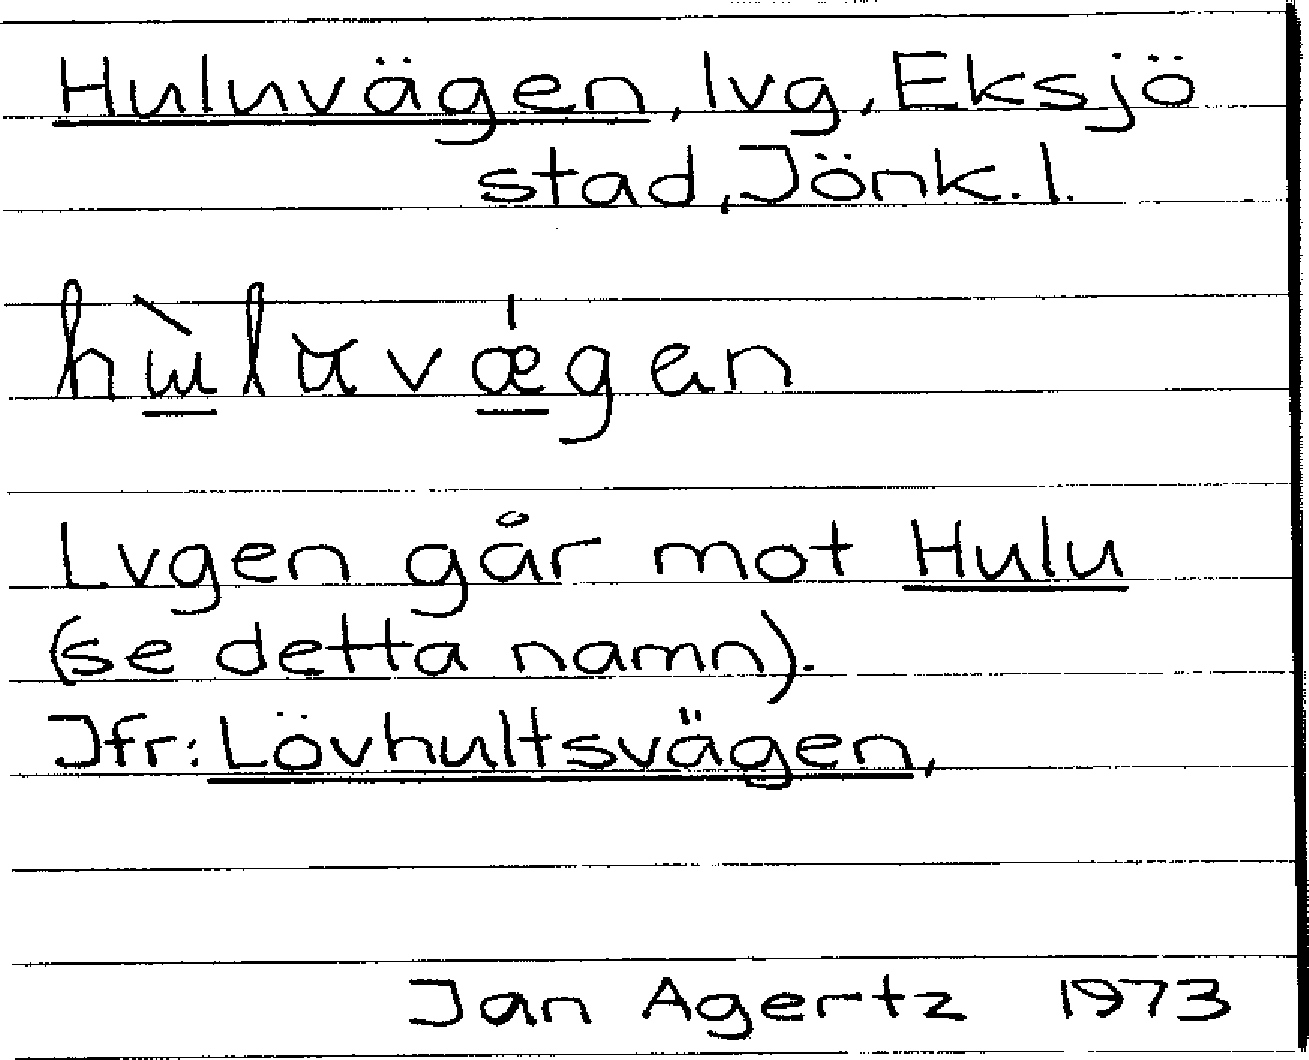 Huluvägen, lvg, Eksjö
stad, Jönk. l.
hùluvǽgen
Lvgen går mot Hulu
(se detta namn).
Jfr: Lövhultsvägen,
Jan Agertz 1973